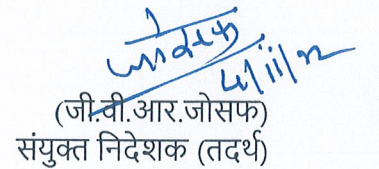 जोसफ
4/11/22
(जी.वी.आर.जोसफ)
संयुक्त निदेशक (तदर्थ)